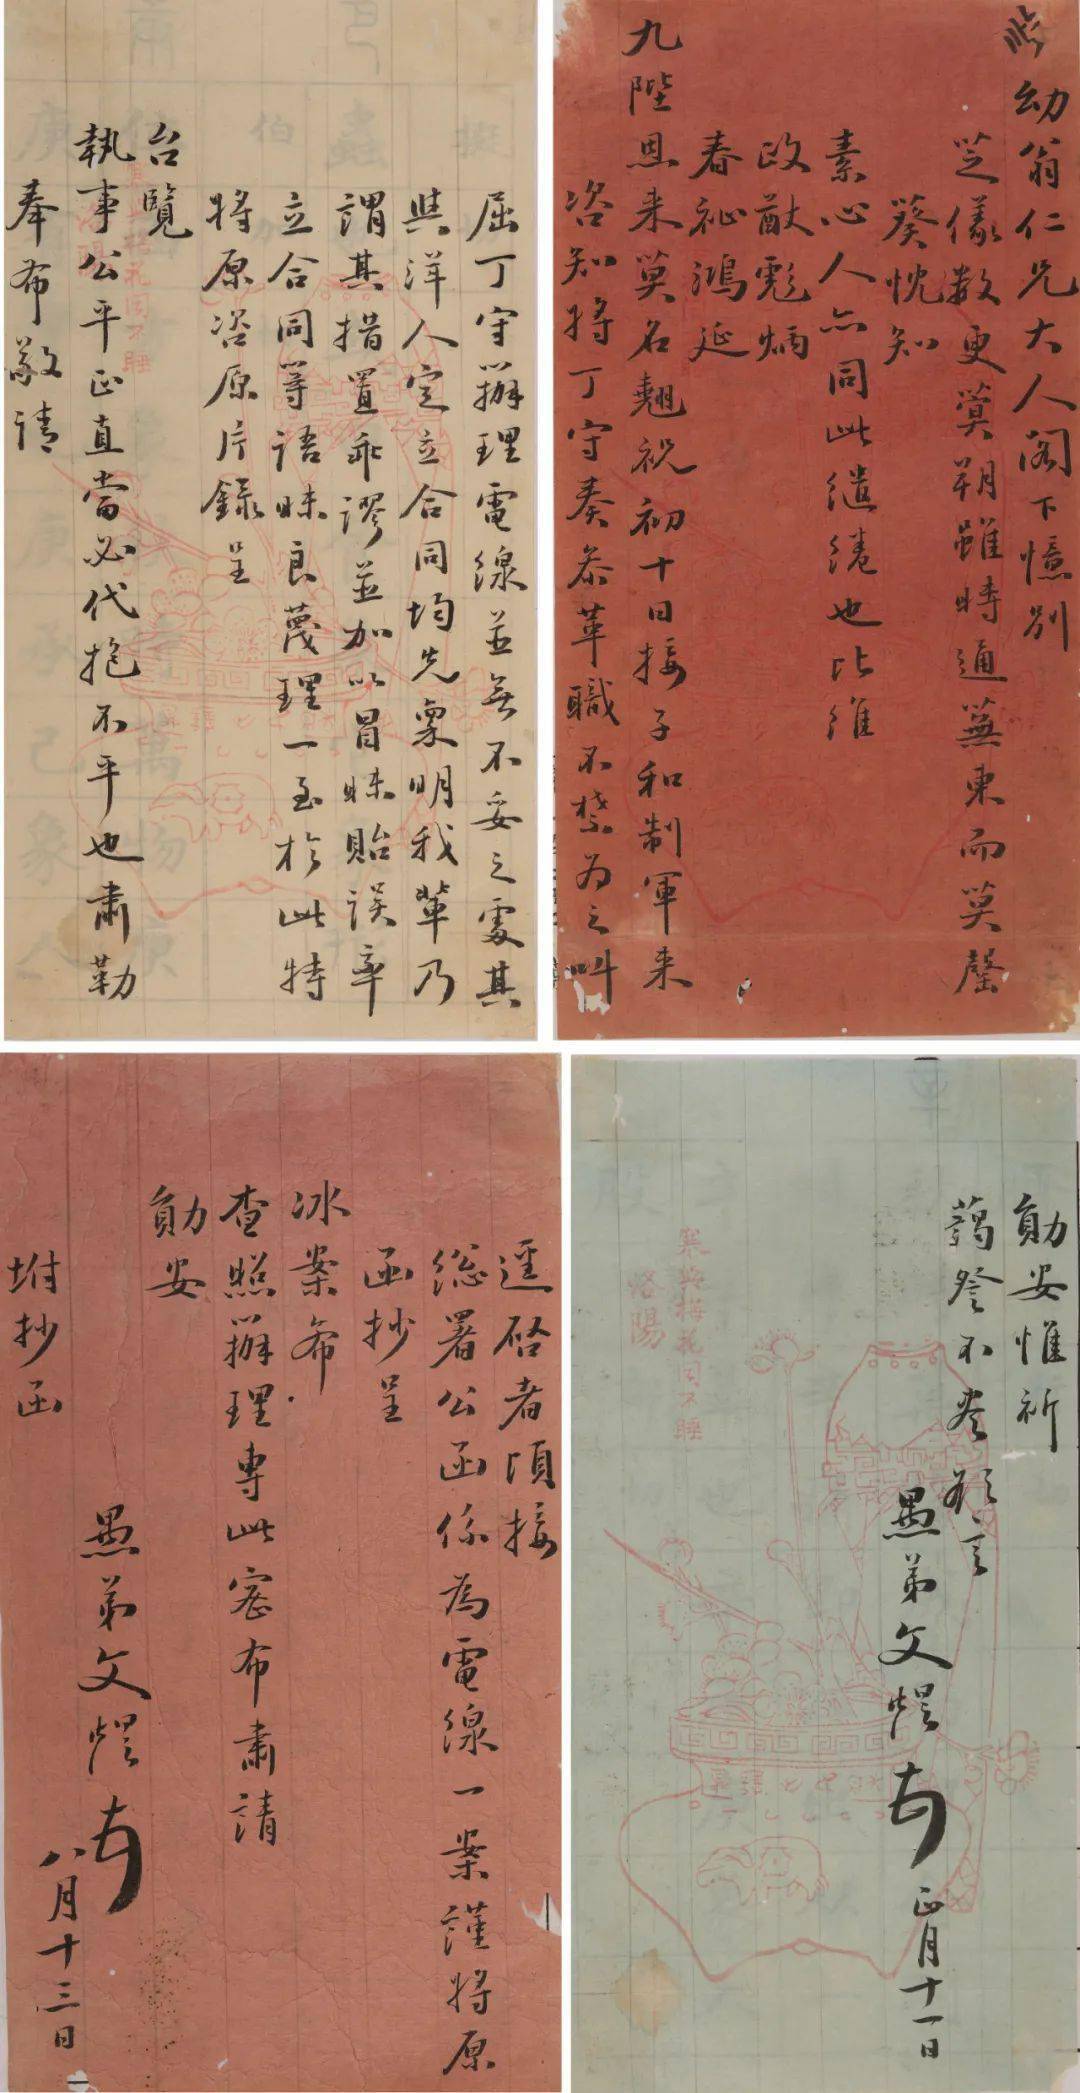 幼翁仁兄大人阁下憶别
芝儀数更蓂朔雖時通蕪柬而莫罄
葵忱知
素心人亦同此缱绻也比維
政猷彪炳
春祉鴻延
九陛恩来莫名翹祝初十日接子和制軍来
咨知將丁守奏叅革職不禁为之叫
屈丁守辦理電線並無不妥之處其
與洋人定立合同均先稟明我輩乃
謂其措置乖謬並加以冒昧貽误率
立合同等语昧良蔑理一至於此特
將原咨原片録呈
台覽
執事公平正直當必代抱不平也肅勒
奉布敬請
勛安惟祈
藹詧不盡欲言
愚弟文煜頓
正月十一日
與梅花同不睡
洛陽
逕啓者頃接
総署公函係為電線一案謹將原
函抄呈
冰案希
查照辦理専此密布肅請
勛安
愚弟文煜頓
八月十三日
坿抄函